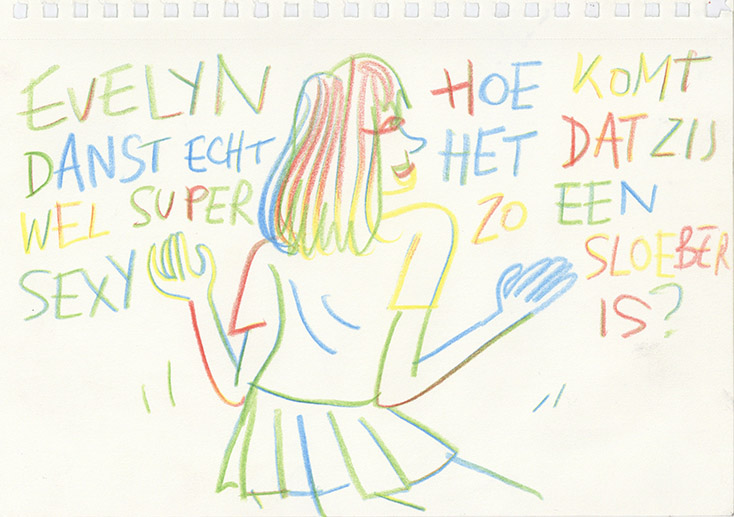 EVELYN
DANST ECHT
WEL SUPER
SEXY
HOE KOMT
HET DAT ZIJ
ZO EEN
SLOEBER
IS?